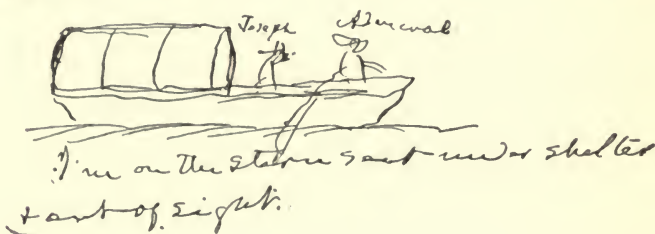 Joseph Admiral
I'm on the stern seat under shelter
& out of sight.